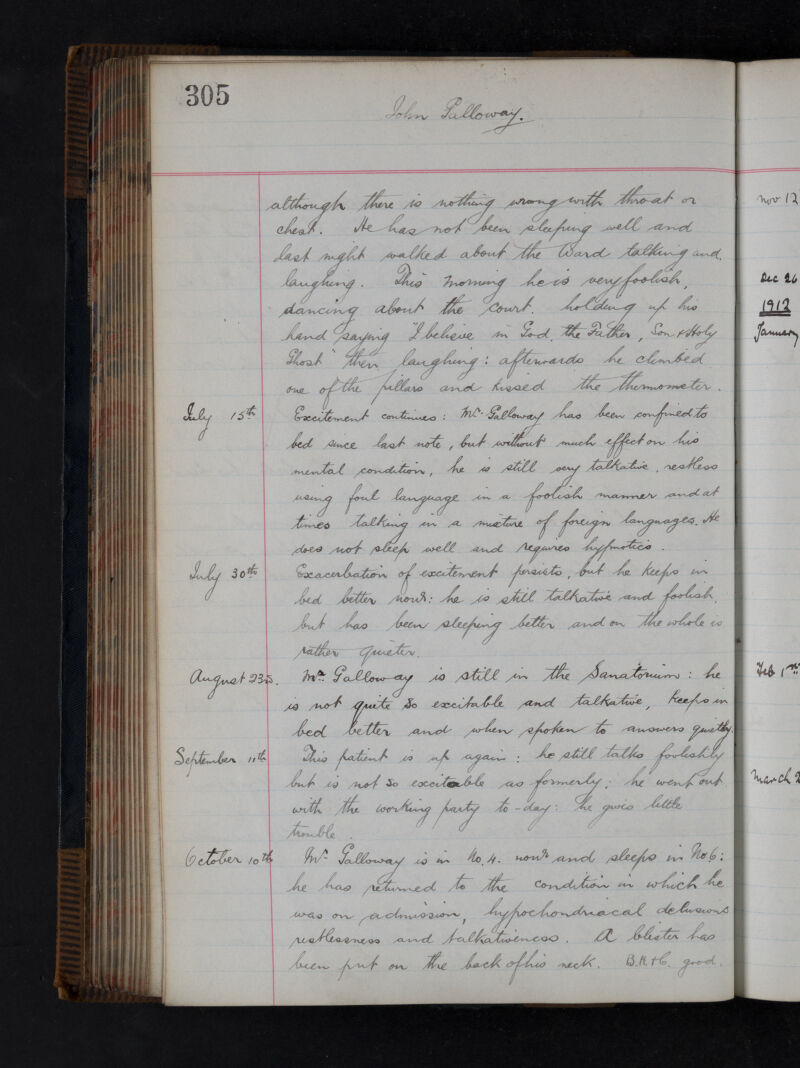 305
John Galloway.
although there is nothing wrong with throat or
chest. He has not been sleeping well and
last night walked about the Ward talking and
laughing. This morning he is very foolish,
dancing about the court. holding up his
hand saying "I believe in God, the Father, Son & Holy
Ghost" then laughing: afterwards he climbed
one of the pillars and kissed the thermometer.
July 15th Excitement continues: Mr. Galloway has been confined to
bed since last note, but without much effect on his
mental condition, he is still very talkative, restless
using foul language in a foolish manner and at
times talking in a mixture of foreign languages. He
does not sleep well and requires hypnotics.
July 30th Exacerbation of excitement persists, but he keeps in
bed better now: he is still talkative and foolish,
but has been sleeping better and on the whole is
rather quieter.
August 23rd. Mr. Galloway is still in the Sanatorium: he
is not quite so excitable and talkative, keeps in
bed better and when spoken to answers quietly.
September 11th This patient is up again: he still talks foolishly
but is not so excitable as formerly: he went out
with the working party to-day: he gives little
trouble.
October 10th Mr. Galloway is in No. 4. now and sleeps in No 6:
he has returned to the condition in which he
was on admission, hypochondriacal delusions
restlessness and talkativeness. A blister has
been put on the back of his neck. B.H. & C. good.
Nov 12
Dec 26
1912
January
Feb 1
March 2